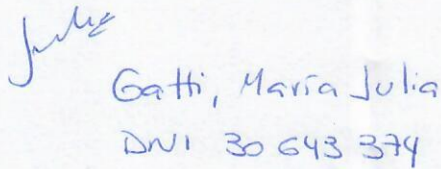 Julia
Gatti, María Julia
DNI 30 643 374